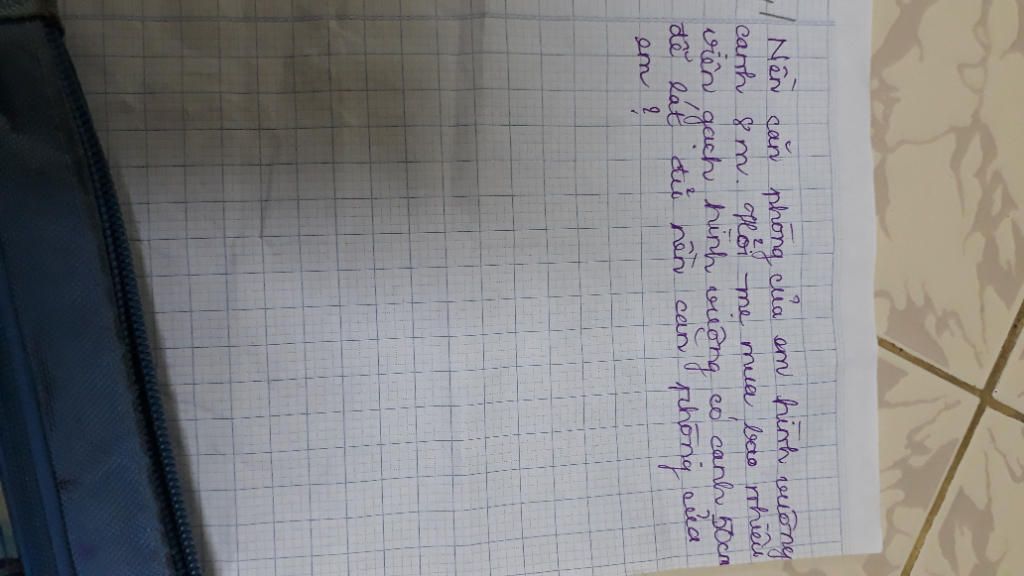 1/
Nền căn phòng của em hình vuông
cạnh 8m. Hỏi mẹ mua bao nhiêu
viên gạch hình vuông có cạnh 50cm
để lát đủ nền căn phòng của
em?